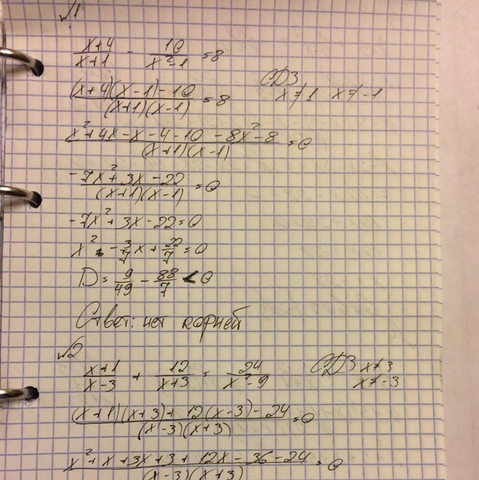 №1
(x+4)/(x+1) - 10/(x²-1) = 8
((x+4)(x-1)-10)/((x+1)(x-1)) = 8 ОДЗ x≠1 x≠-1
(x²+4x-x-4-10-8x²-8)/((x+1)(x-1)) = 0
(-7x²+3x-22)/((x+1)(x-1)) = 0
-7x²+3x-22=0
x² - 3/7x + 22/7 = 0
D = 9/49 - 88/7 < 0
Ответ: нет корней
№2
(x+1)/(x-3) + 12/(x+3) = 24/(x²-9) ОДЗ x≠3 x≠-3
((x+1)(x+3)+12(x-3)-24)/((x-3)(x+3)) = 0
(x²+x+3x+3+12x-36-24)/((x-3)(x+3)) = 0